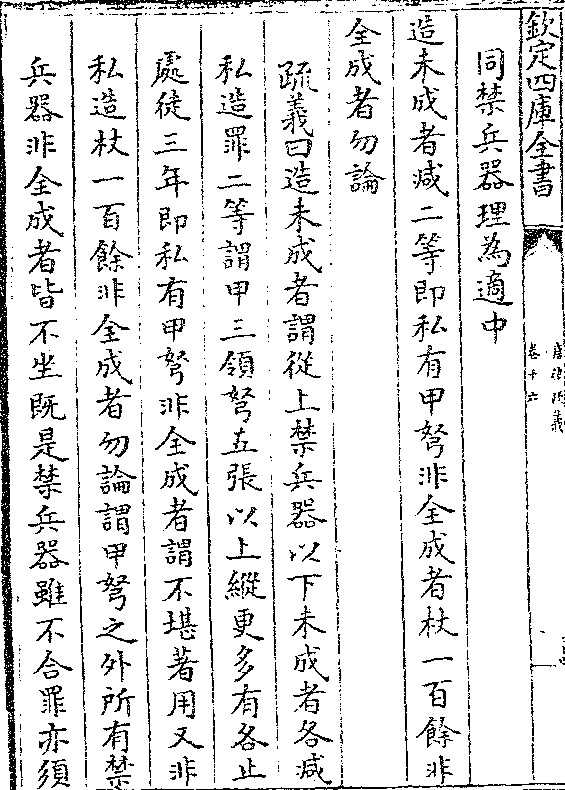 欽定四庫全書
唐律疏義
卷十六
同禁兵器理為適中
造未成者減二等即私有甲弩非全成者杖一百餘非
全成者勿論
疏義曰造未成者謂從上禁兵器以下未成者各減
私造罪二等謂甲三領弩五張以上縱更多有各止
處徒三年即私有甲弩非全成者謂不堪著用又非
私造杖一百餘非全成者勿論謂甲弩之外所有禁
兵器非全成者皆不坐既是禁兵器雖不合罪亦須